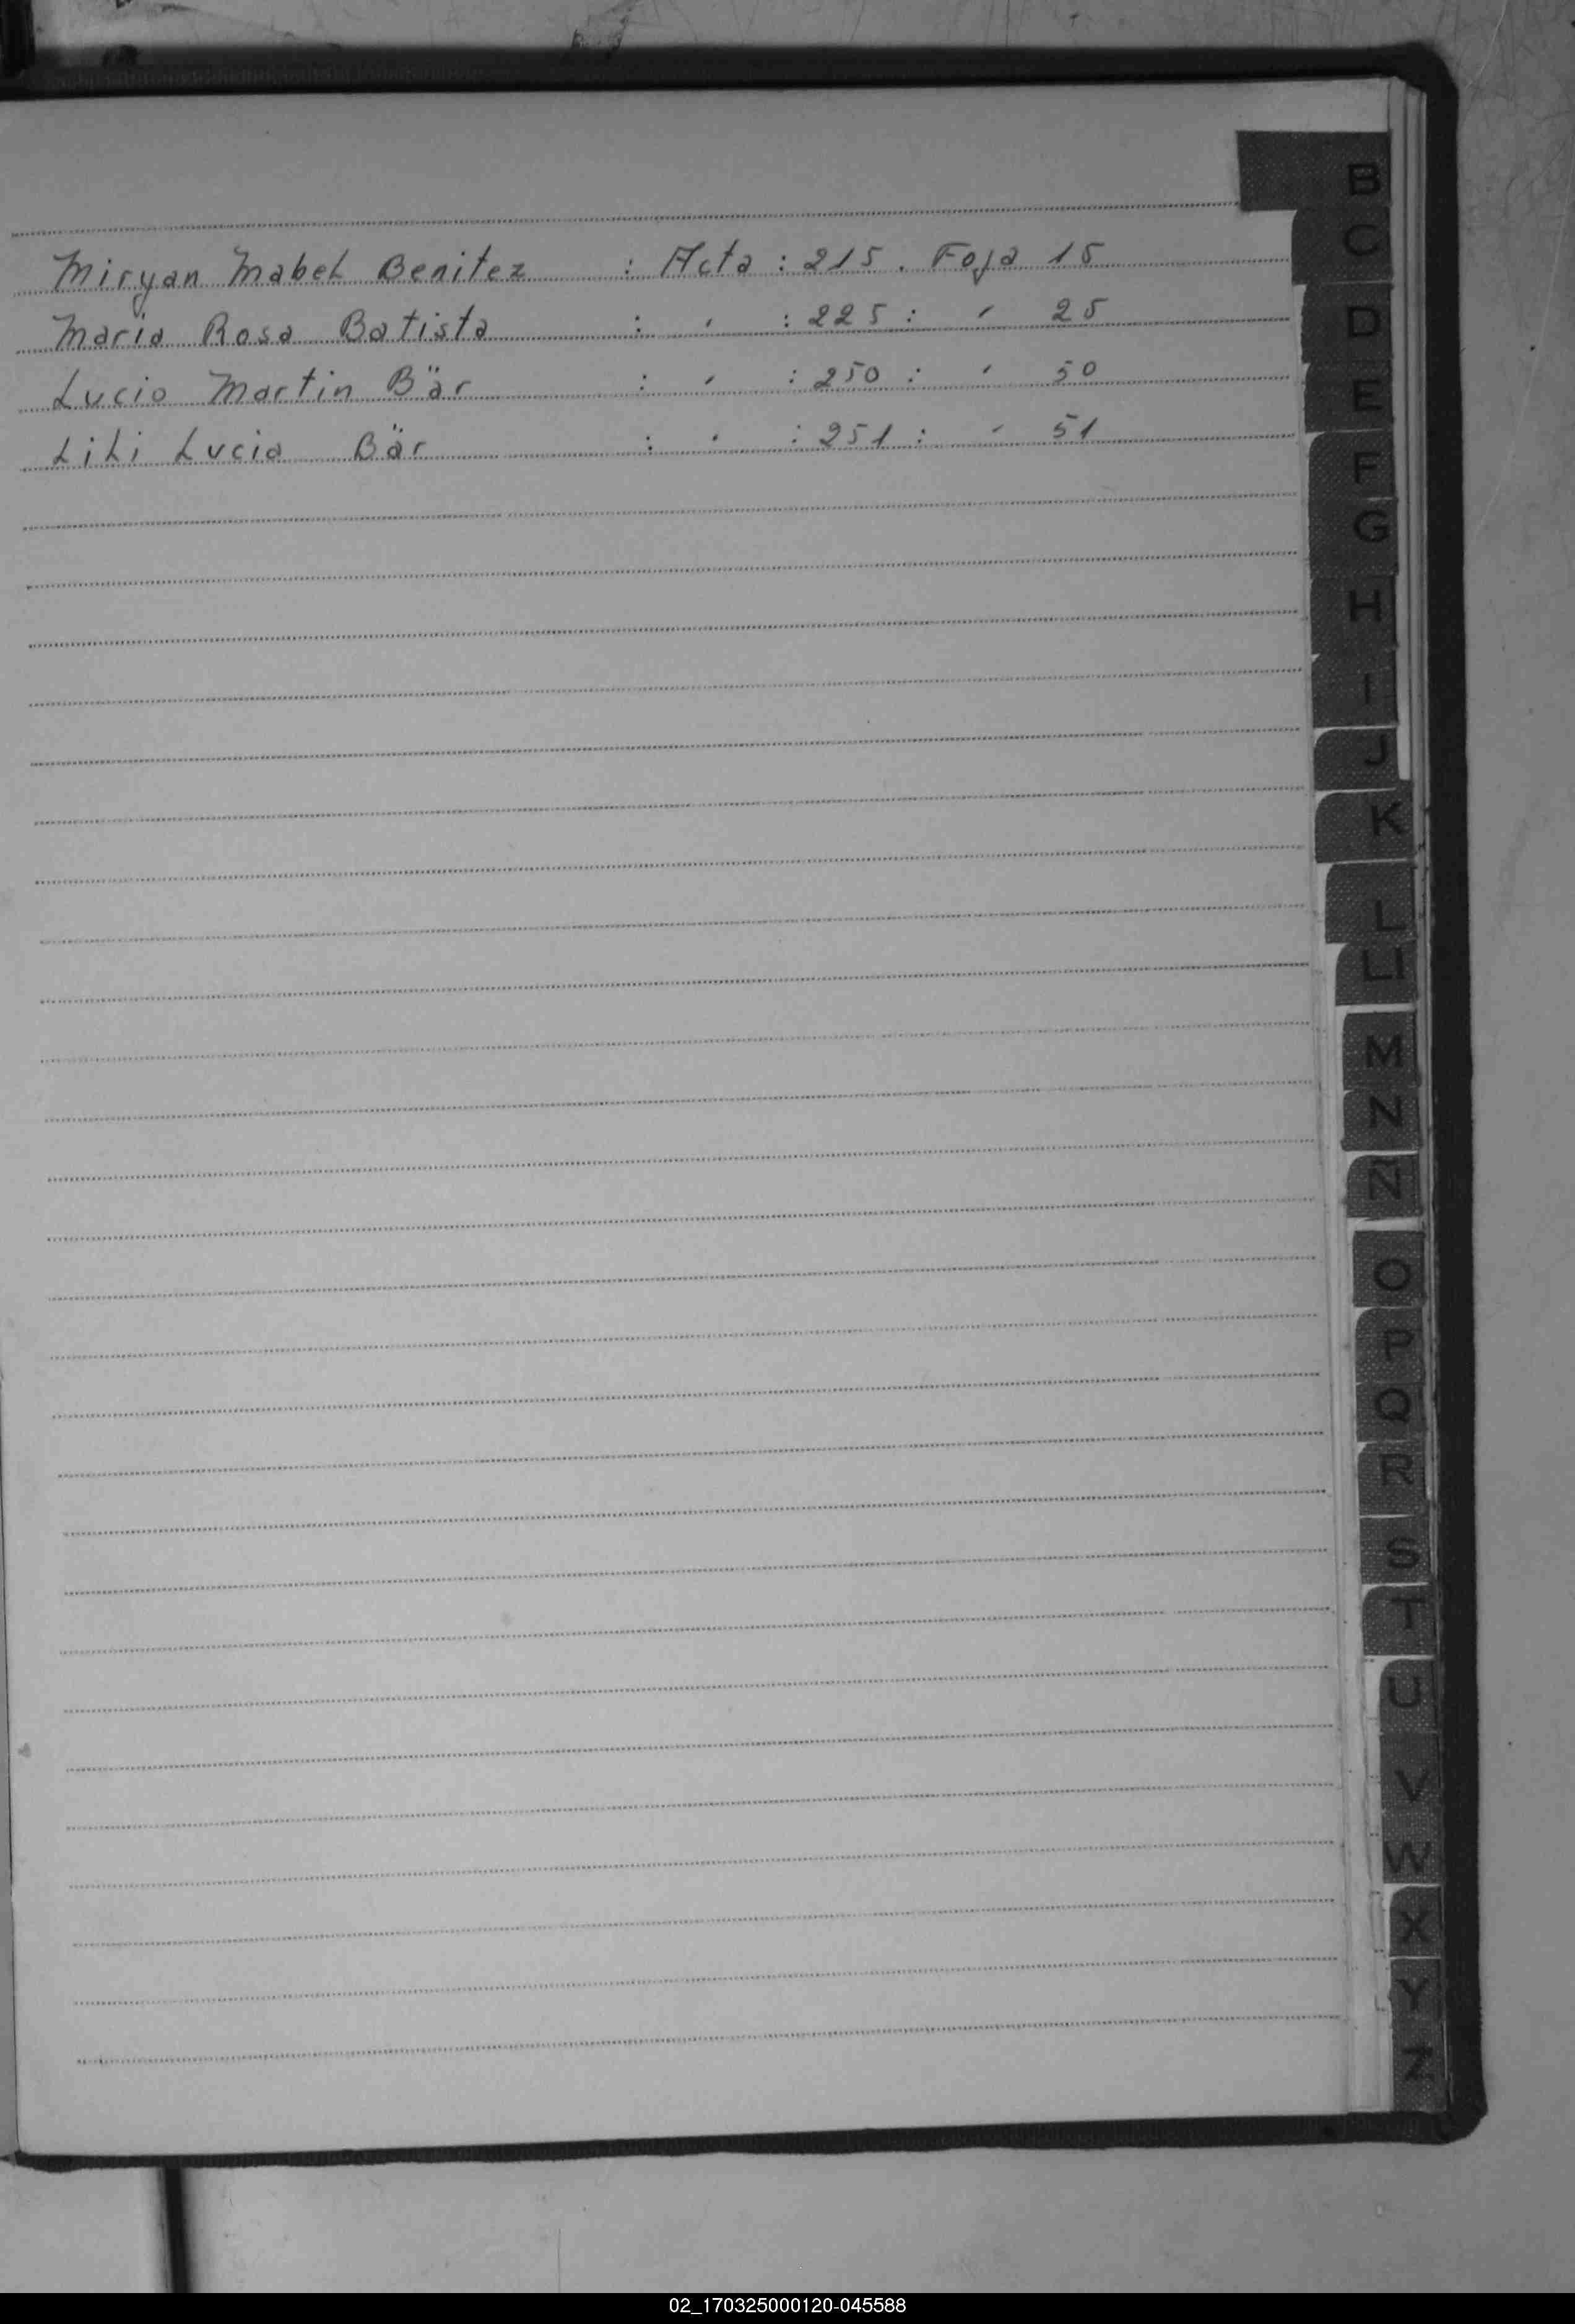 Miryan Mabel Benitez : Acta : 215 . Foja 15
Maria Rosa Batista : ′ : 225 : ′ 25
Lucio Martin Bär : ′ : 250 : ′ 50
Lili Lucia Bär : ′ : 251 : ′ 51
B
C
D
E
F
G
H
I
J
K
L
LL
M
N
Ñ
O
P
Q
R
S
T
U
V
W
X
Y
Z
02_170325000120-045588